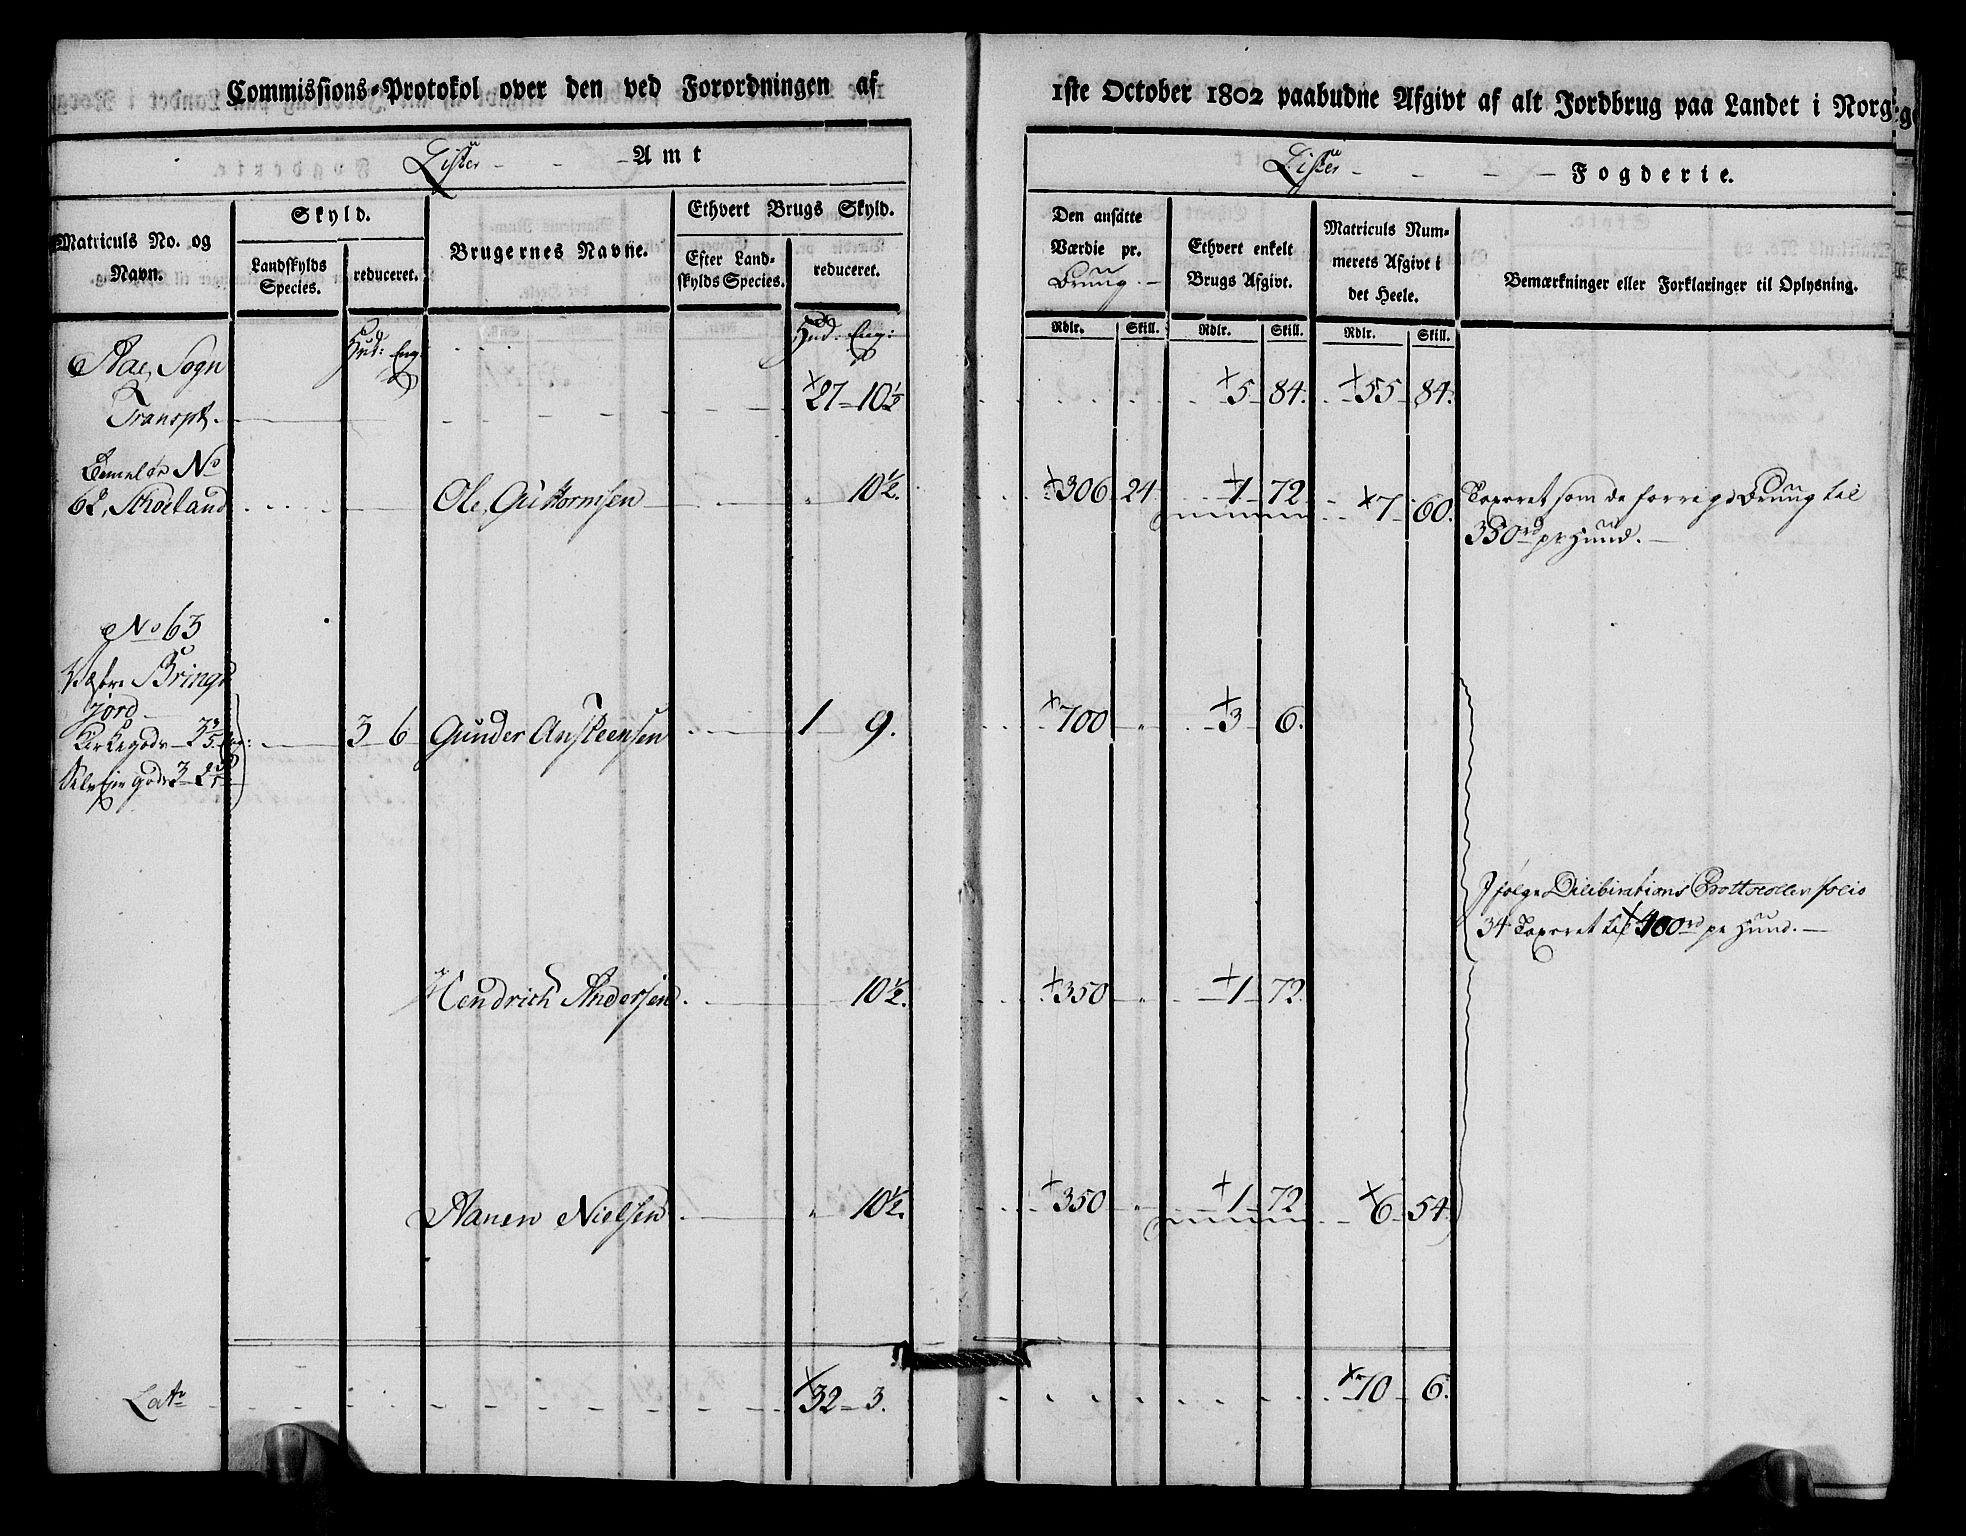 Commissions-Protokol over den ved Forordningen af 1ste October 1802 paabudne Afgivt af alt Jordbrug paa Landet i Norg
Lister Amt
Lister Fogderie.
Matriculs No. og Navn.
Skyld.
Landskylds Species.
reduceret.
Brugernes Navne.
Ethvert Brugs Skyld.
Efter Landskylds Species.
reduceret.
Den ansatte Værdie pr. Brug.
Ethvert enkelt Brugs Afgivt.
Matriculs Nummerets Afgivt i det Heele.
Bemærkninger eller Forklaringer til Oplysning.
Rdlr. Skill. Rdlr. Skill. Rdlr. Skill.
Hud: Eng: Hud: Eng:
Aae, Sogn
Transpt. 27 10½ 5 84. 55 84.
No
62, Skoeland Ole, Guttormsen " 10½. 306 24 1 72. 7 60. Taxeret som de forrige Brug til
350 rd pr Hund.
No 63
Vestre Brings
jord
Kirkegods 3 6 Gunder Anskeensen 1 9. 700 " 3 6.
Selv Eier gods
Ifølge Deliberations Prottocollen folio
34 Taxeret til 400 rd pr Hund.
Hendrich Andersen 10½. 350 " 1 72.
Aanen Nielsen " 10½. 350 " 1 72. 6 54.
Lat 32 3. 70 6.